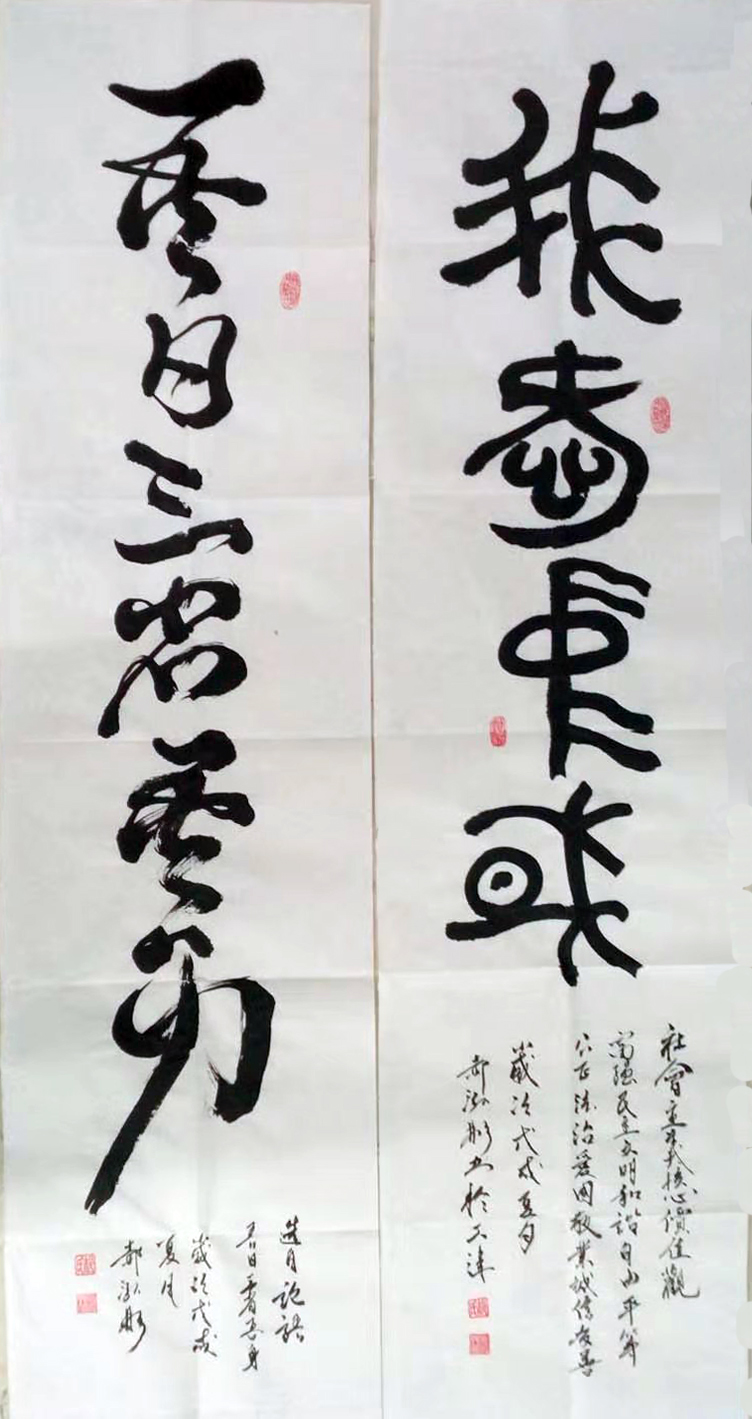 我愛中國
社會主義核心價值觀
富强民主文明和諧自由平等
公正法治爱國敬業誠信友善
歲次戊戌夏月
郝泓書於天津
吾日三省吾身
选自論語
吾日三省吾身
歲次戊戌
夏月
郝泓